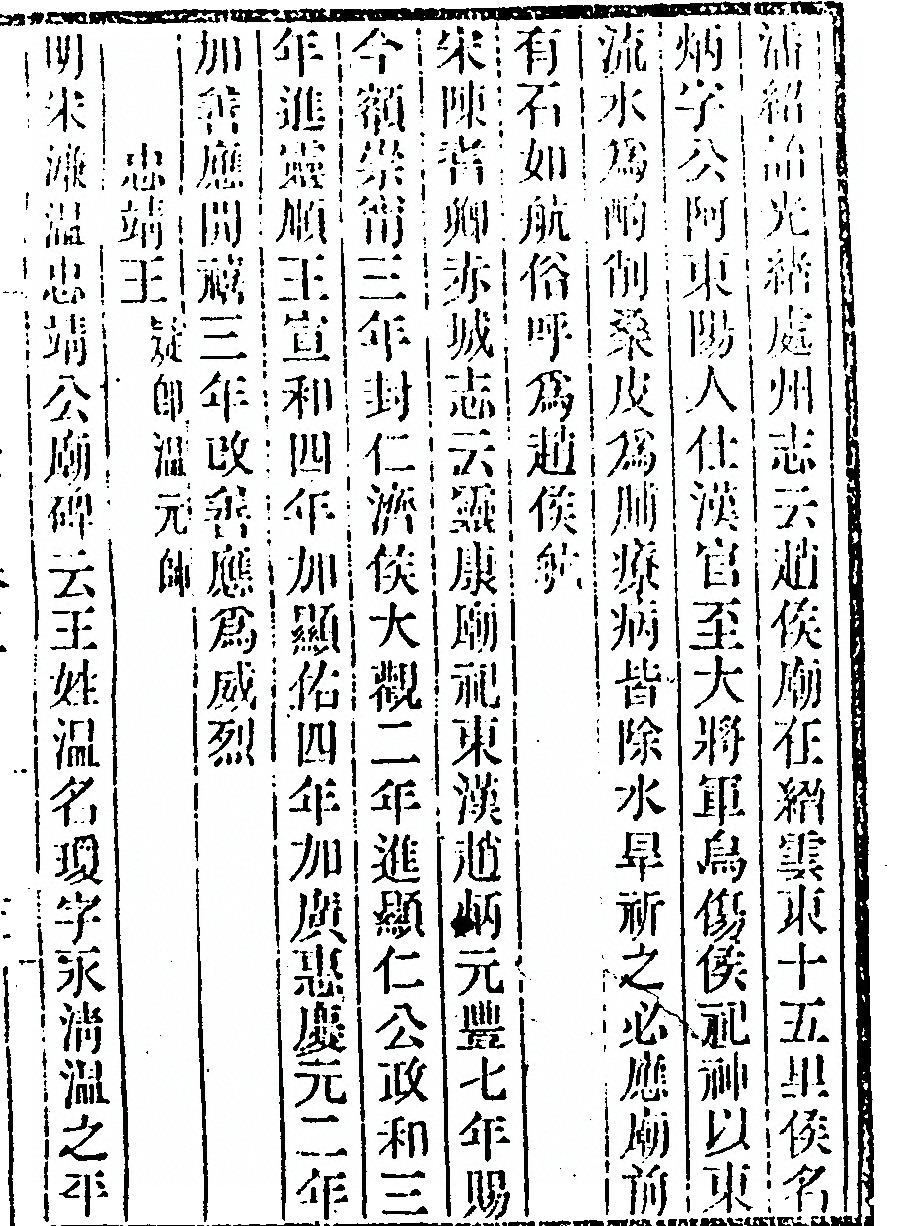 潘紹詒光緒處州志云趙侯廟在縉雲東十五里侯名
炳字公阿東陽人仕漢官至大將軍烏傷侯祀神以東
流水為酌削桑皮為脯療病皆除水旱祈之必應廟前
有石如航俗呼爲趙侯
宋陳耆卿赤城志云靈康廟祀東漢趙炳元豐七年賜
今額崇甯三年封仁濟侯大觀二年進顯仁公政和三
年進靈順王宣和四年加顯佑四年加廣惠慶元二年
加善應開禧三年改善應爲威烈
忠靖王 疑卽溫元帥
明宋濂溫忠靖公廟碑云王姓溫名瓊字永淸溫之平